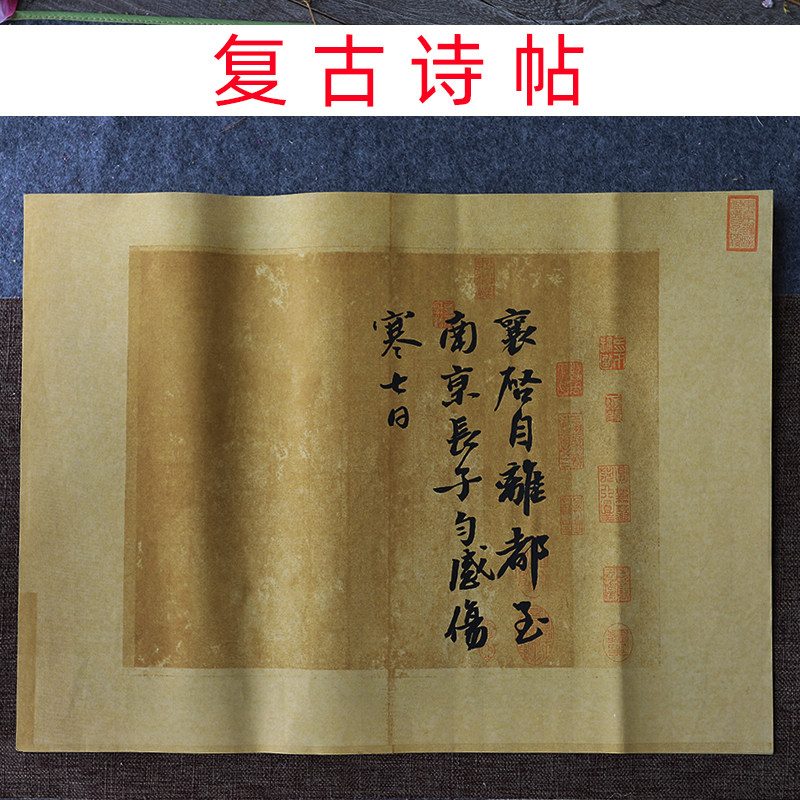 复古诗帖
襄啓自離都至
南京長子勻感傷
寒七日